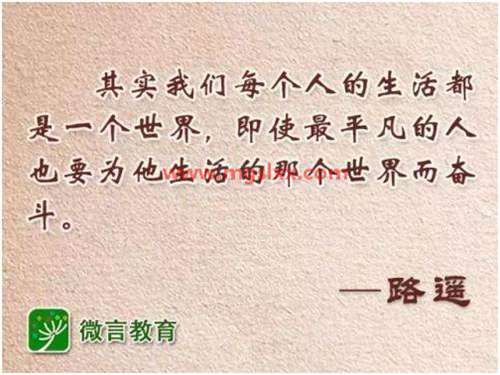 其实我们每个人的生活都
是一个世界，即使最平凡的人
也要为他生活的那个世界而奋
斗。
—路遥
微言教育